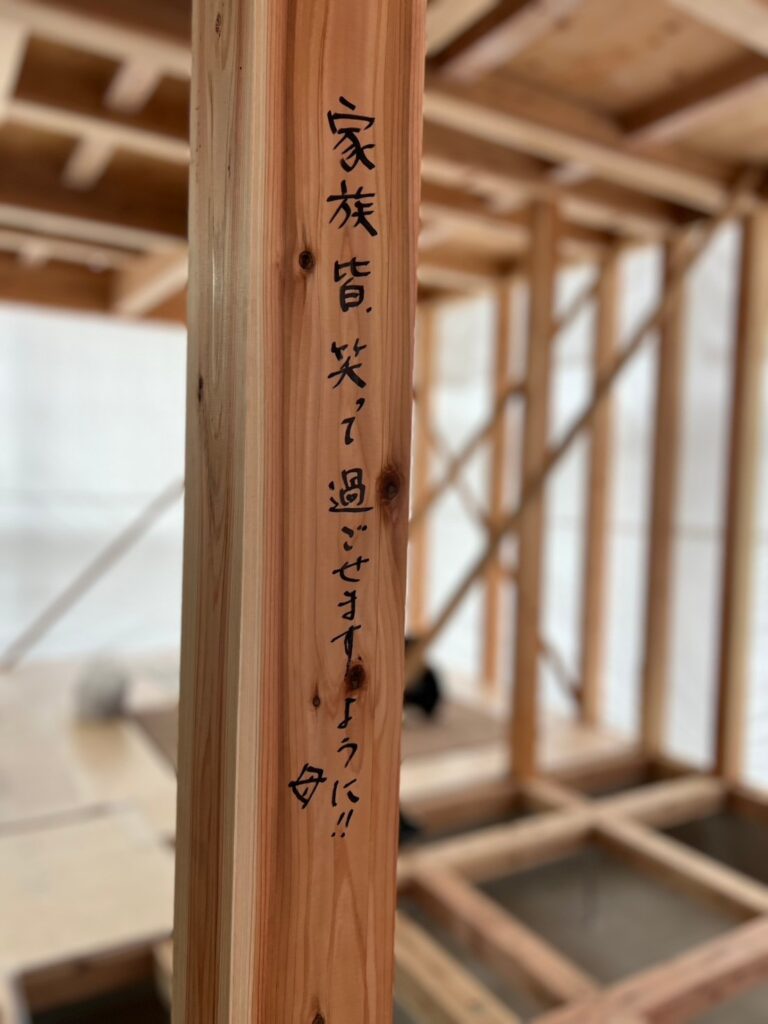 家族皆、笑って過ごせますように!!
母